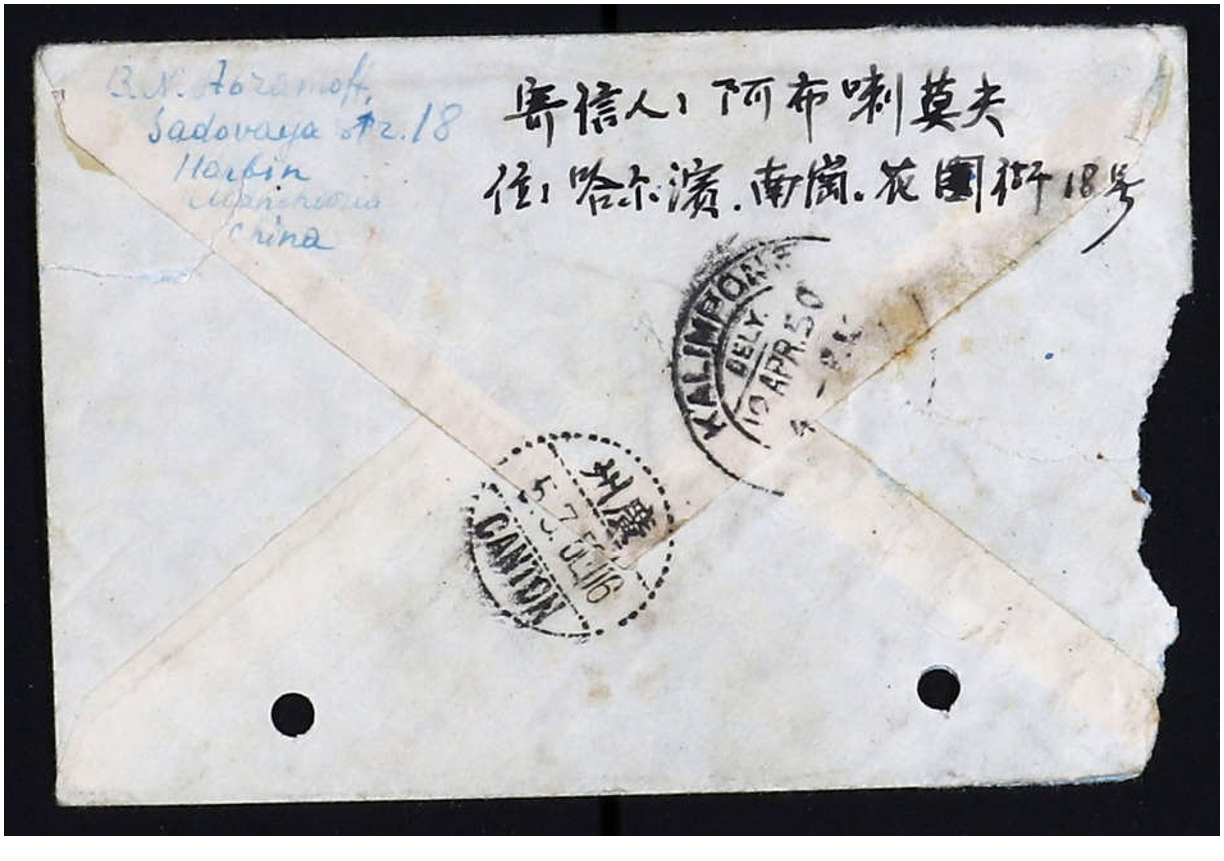 B. N. Abramoff,
Sadovaya str. 18
Harbin
Manchuria
China
寄信人: 阿布喇莫夫
住: 哈尔濱. 南崗. 花園街 18号
KALIMPONG
DELY.
12 APR. 50
廣州
CANTON